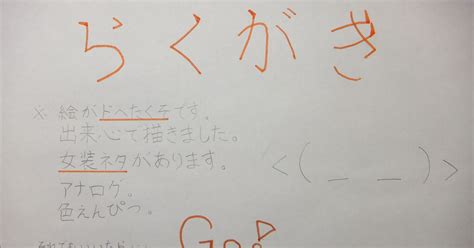 らくがき
※ 絵がドへたくそです。
出来心で描きました。
女装ネタがあります。
<(_ _)>
アナログ。
色えんぴつ。
Go!